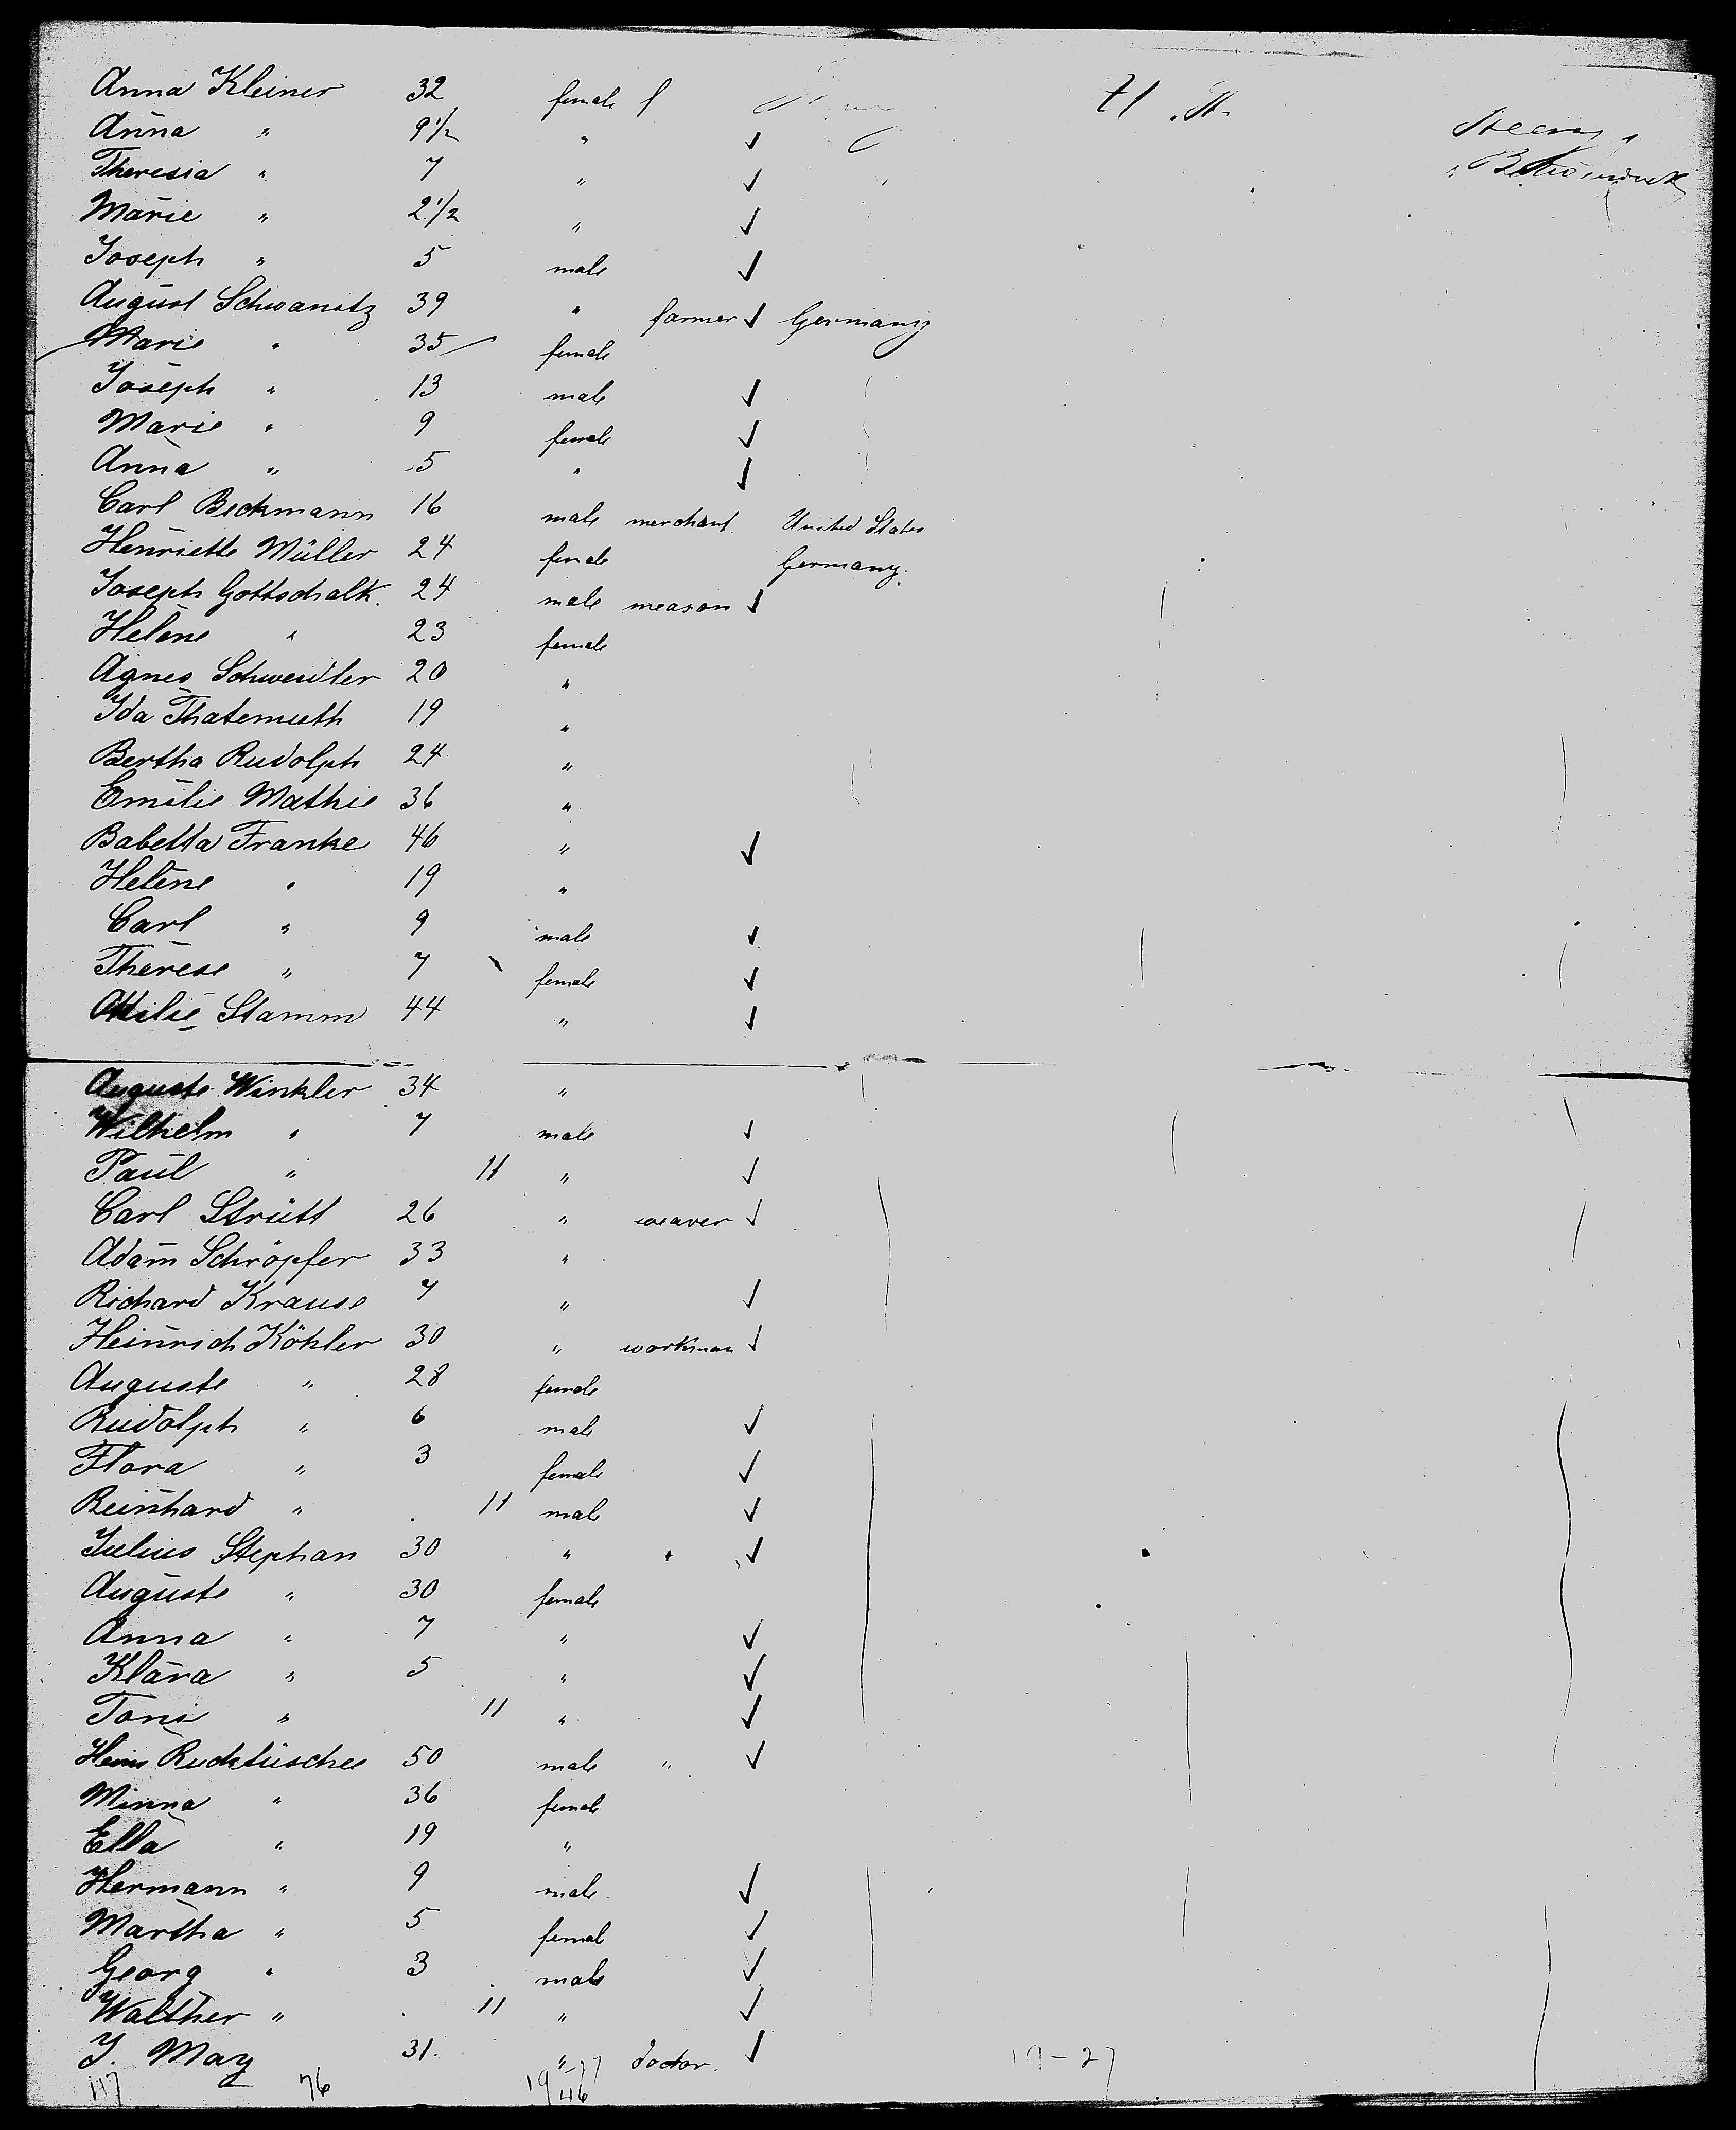 Anna Kleiner 32 female
Anna " 9 1/2 "
Theresia " 7 "
Marie " 2 1/2 "
Joseph " 5 male
August Schwanitz 39 " farmer Germany
Marie " 35 female
Joseph " 13 male
Marie " 9 female
Anna " 5 "
Carl Beckmann 16 male merchant United States
Henriette Müller 24 female Germany.
Joseph Gottschalk. 24 male meason
Helene " 23 female
Agnes Schweidler 20 "
Ida Thatemuth 19 "
Bertha Rudolph 24 "
Emilie Mathie 36 "
Babetta Franke 46 "
Helene " 19 "
Carl " 9 male
Therese " 7 female
Ottilie Stamm 44 "
Auguste Winkler 34 "
Wilhelm " 7 male
Paul " 11 "
Carl Strütt 26 " weaver
Adam Schröpfer 33 "
Richard Krause 7 "
Heinrich Köhler 30 " workman
Auguste " 28 female
Rudolph " 6 male
Flora " 3 female
Reinhard " 11 male
Julius Stephan 30 " "
Auguste " 30 female
Anna " 7 "
Klara " 5 "
Toni " 11 "
Heinr Rucktüschel 50 male "
Minna " 36 female
Ella " 19 "
Hermann " 9 male
Martha " 5 female
Georg " 3 male
Walther " 11 "
J. May 31. " doctor.
76 46 19-27